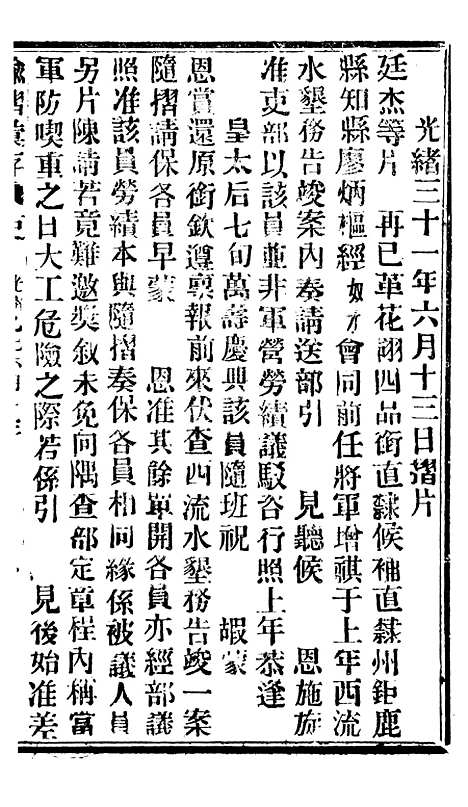 光緒三十一年六月十三日摺片
廷杰等片　再已革花翎四品銜直隸候補直隸州鉅鹿
縣知縣廖炳樞經奴才會同前任將軍增祺于上年西流
水墾務告竣案內奏請送部引　見聽候　恩施旋
准吏部以該員並非軍營勞績議駁咨行照上年恭逢
皇太后七旬萬壽慶典該員隨班祝　嘏蒙
恩賞還原銜欽遵稟報前來伏查西流水墾務告竣一案
隨摺請保各員早蒙　恩准其餘單開各員亦經部議
照准該員勞績本與隨摺奏保各員相同緣係被議人員
另片陳請若竟難邀獎敘未免向隅查部定章程內稱當
軍防喫重之日大工危險之際若係引　見後始准差